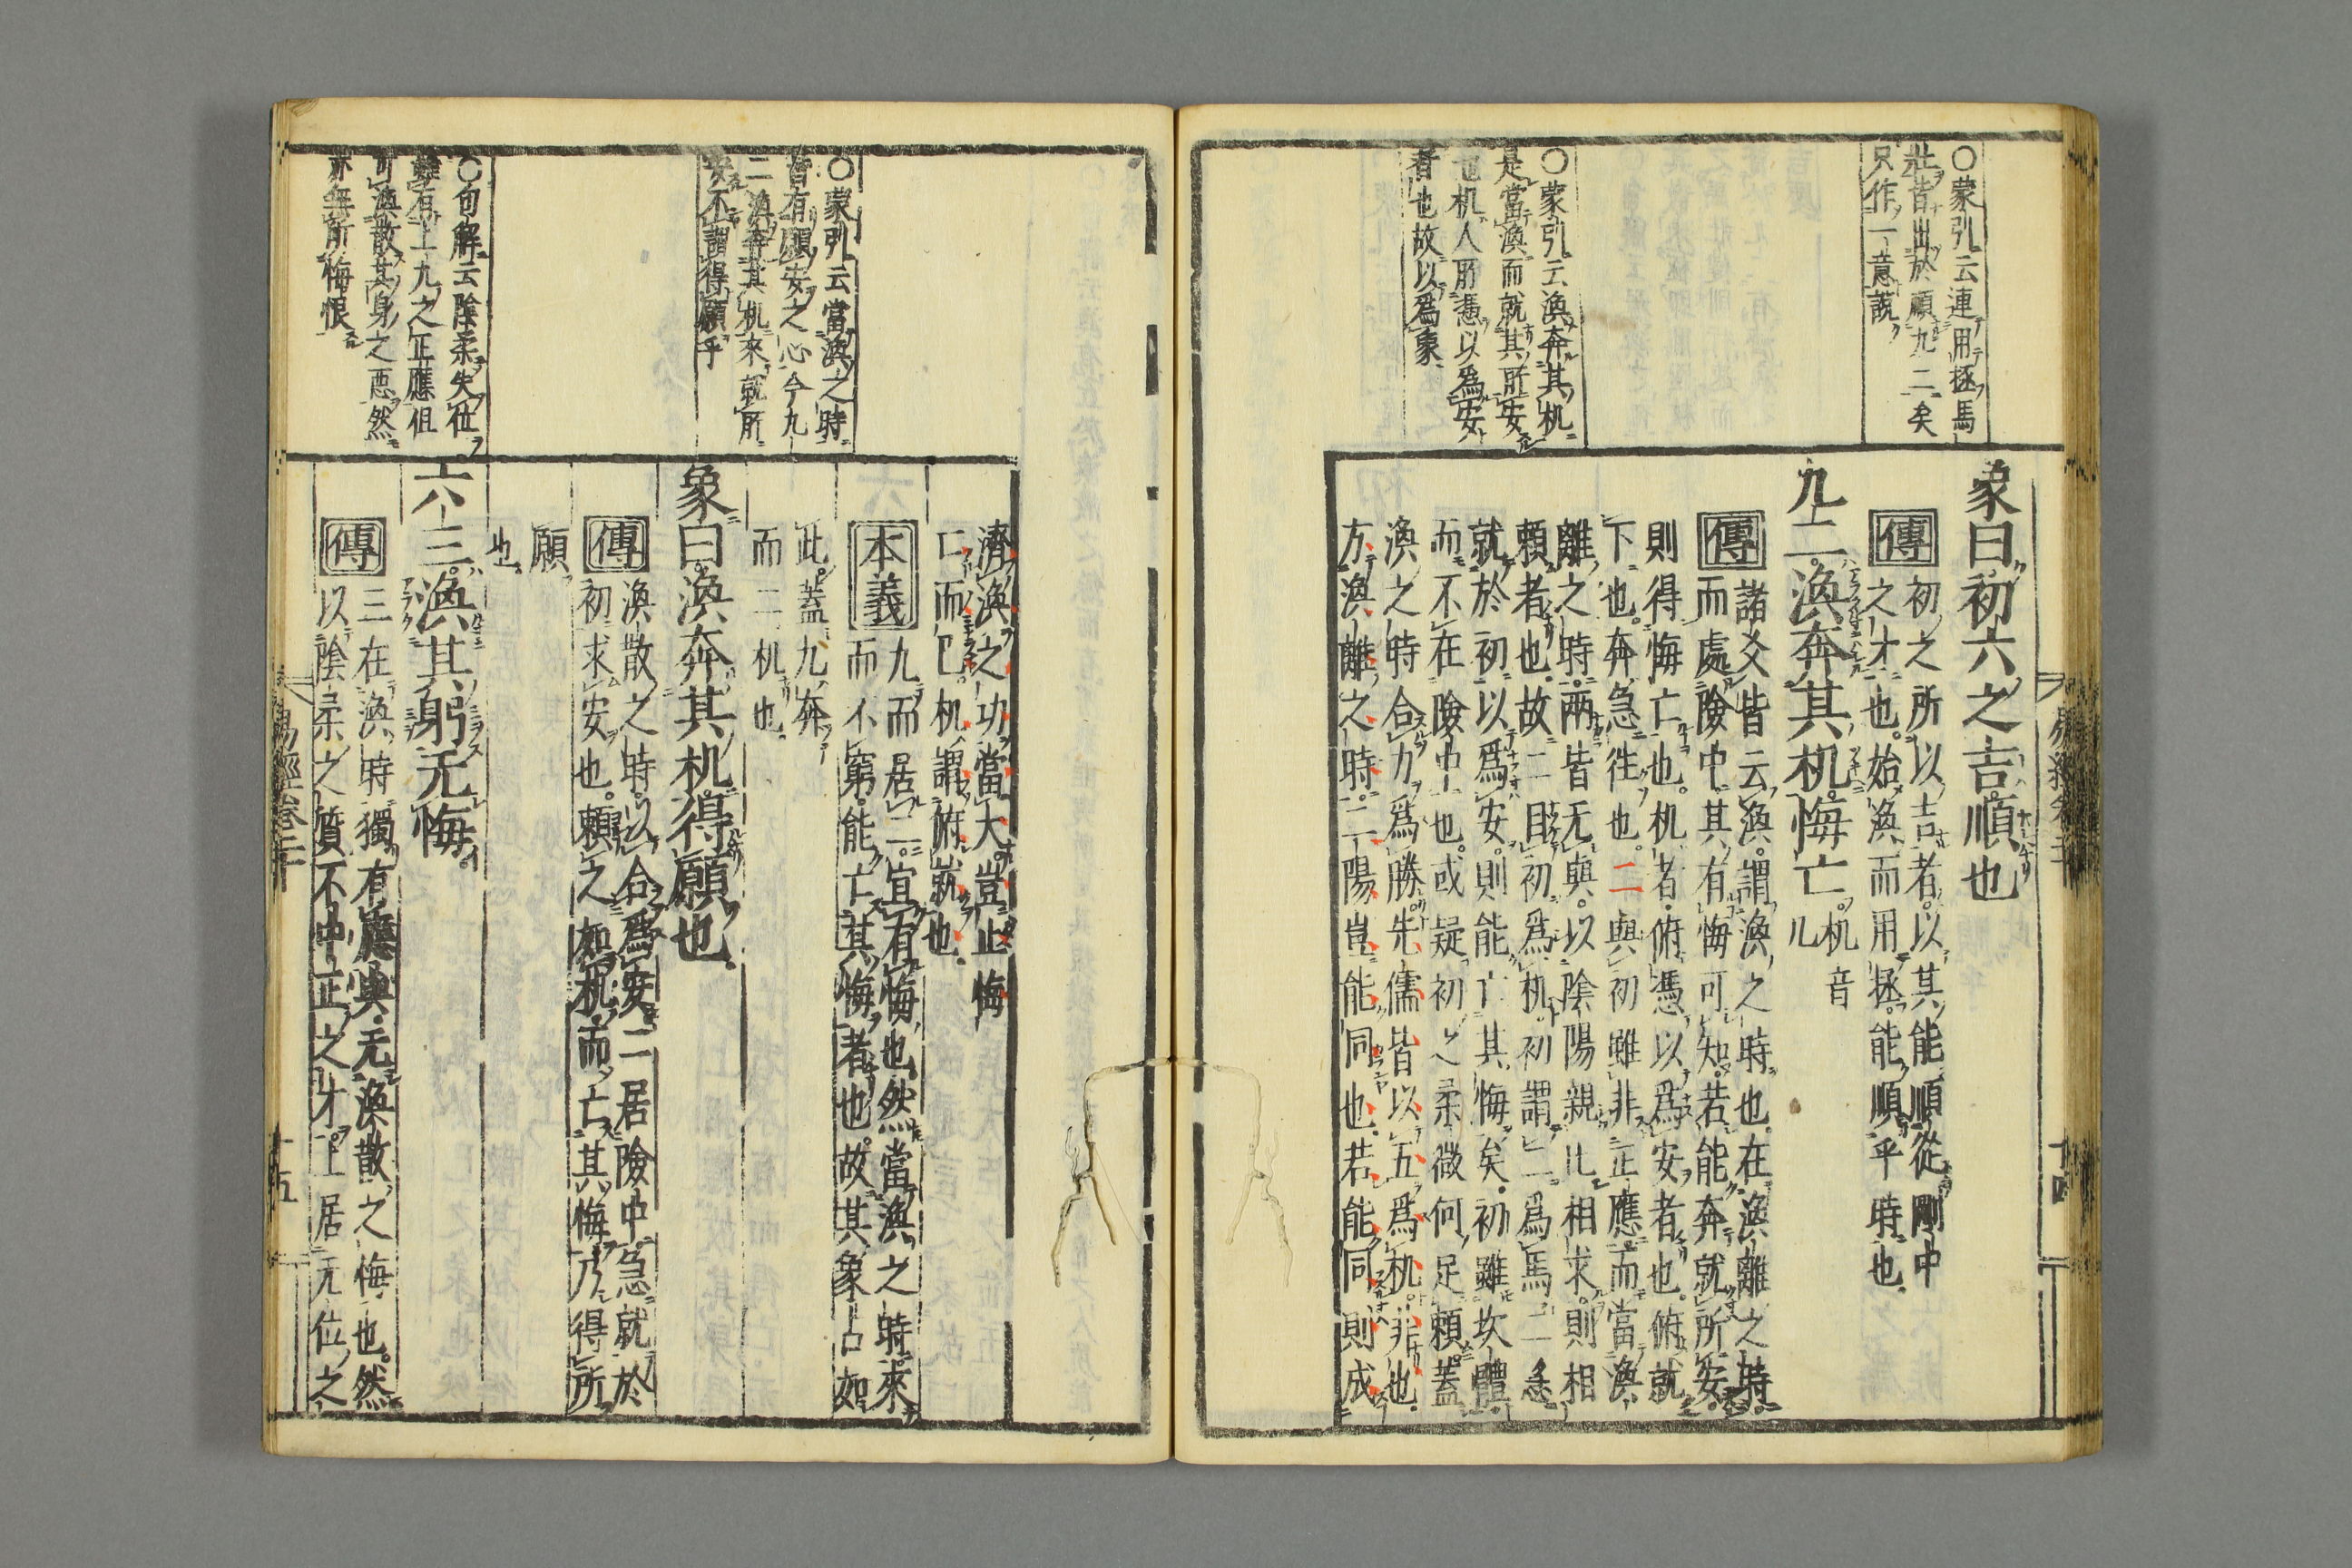 ○蒙引云連用拯馬
壯皆出於順九二矣
只作一意說
○蒙引云渙奔其机
是當渙而就其所安
也机人所憑以爲安
者也故以爲象
象曰初六之吉順也
傳
初之所以吉者以其能順從剛中
之才也始渙而用拯能順乎時也
九二渙奔其机悔亡
机音
几
傳
諸爻皆云渙謂渙之時也在渙離之時
而處險中其有悔可知若能奔就所安
則得悔亡也机者俯憑以爲安者也俯就
下也奔急往也二與初雖非正應而當渙
離之時兩皆无與以陰陽親比相求則相
賴者也故二目初爲机初謂二爲馬二急
就於初以爲安則能亡其悔矣初雖坎體
而不在險中也或疑初之柔微何足賴蓋
渙之時合力爲勝先儒皆以五爲机非也
方渙離之時二陽豈能同也若能同則成
易經卷二十
十四
○蒙引云當渙之時
皆有願安之心今九
二渙奔其机來就所
安不謂得願乎
○句解云陰柔失位
雖有上九之正應但
可渙散其身之悪然
亦無所悔恨
濟渙之功當大豈止悔
亡而已机謂俯就也
本義
九而居二宜有悔也然當渙之時來
而不窮能亡其悔者也故其象占如
此蓋九奔
而二机也
象曰渙奔其机得願也
傳
渙散之時以合爲安二居險中急就於
初求安也賴之如机而亡其悔乃得所
願
也
六三渙其躬无悔
傳
三在渙時獨有應與无渙散之悔也然
以陰柔之質不中正之才上居无位之
易經卷二十
十五